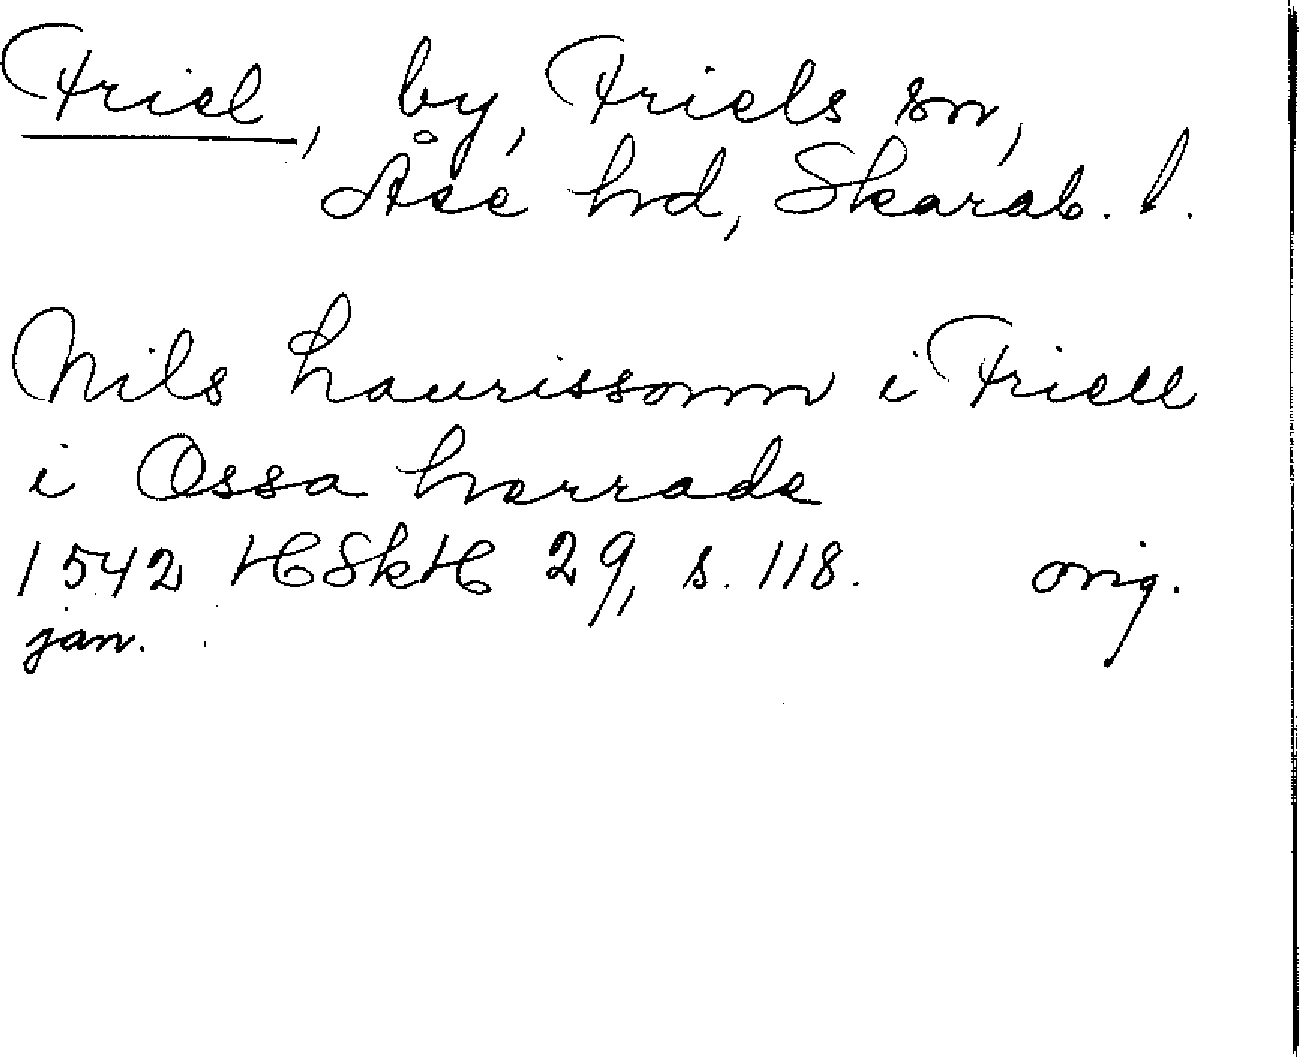 Friel, by, Friels sn,
Åse hd, Skarab. l.
Nils Laurissonn i Friell
i Ossa herrade
1542 HSkH 29, s. 118. orig.
jan.